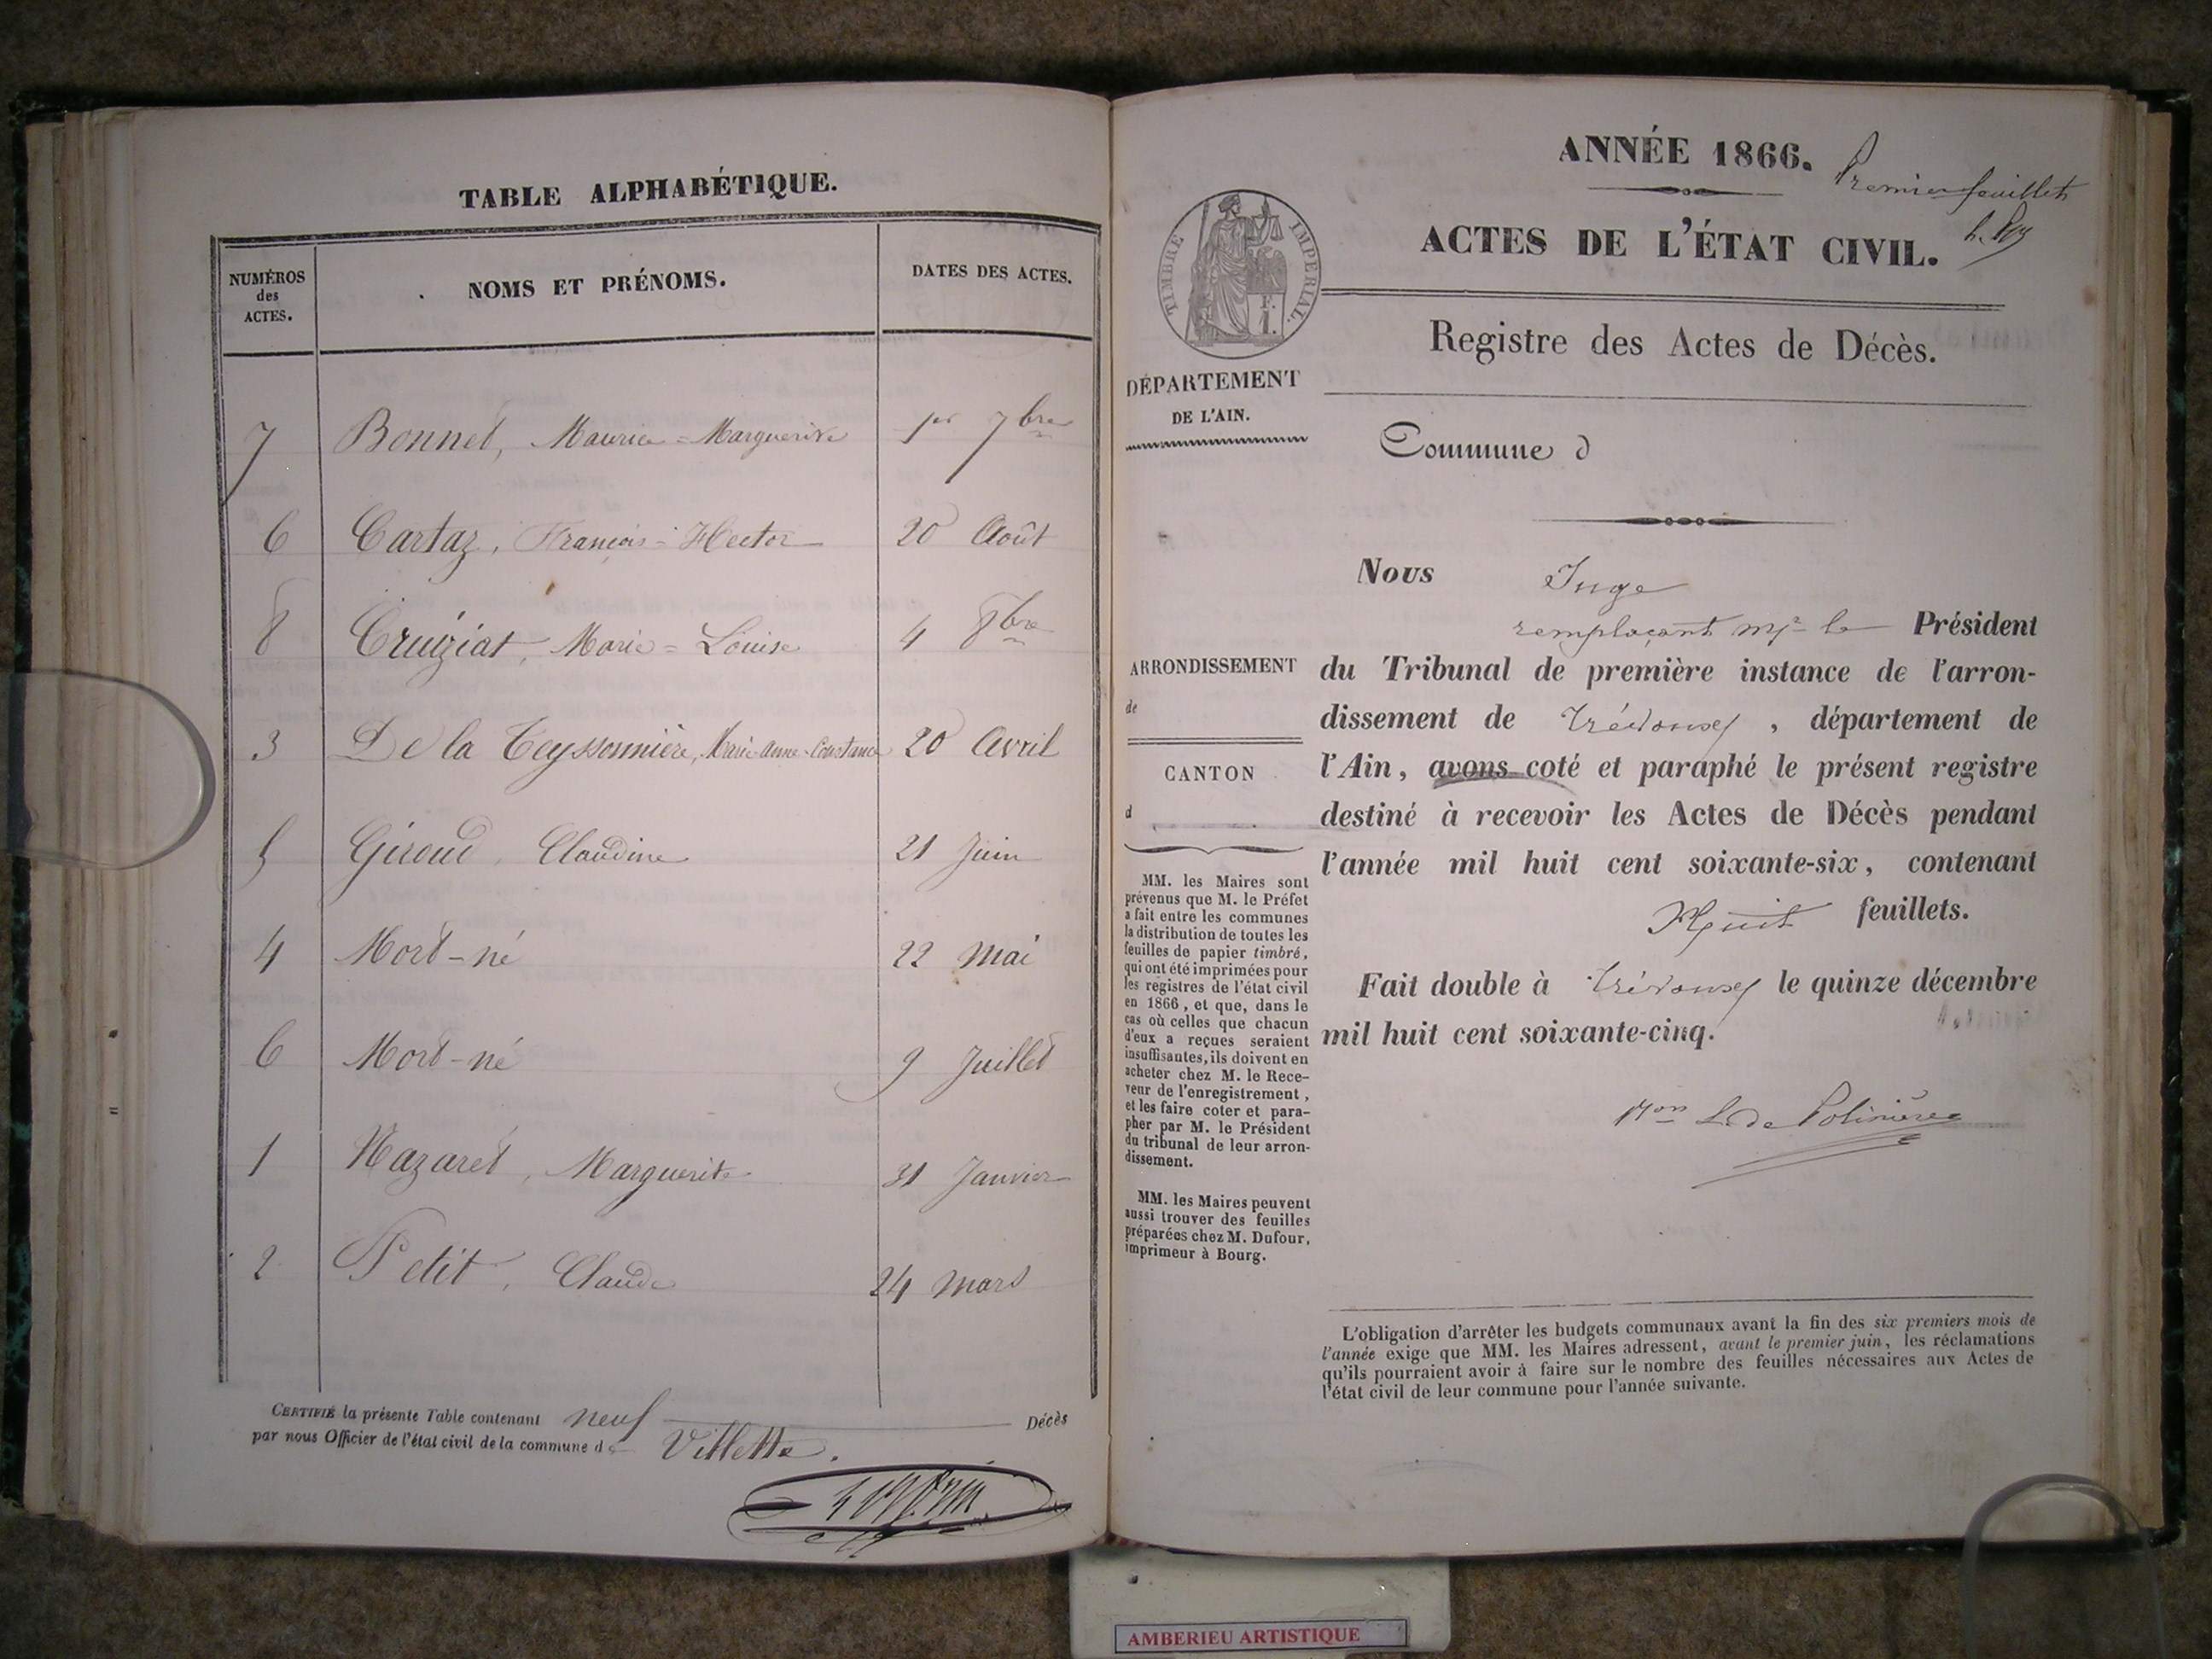 TABLE ALPHABÉTIQUE.
NUMÉROS
des
ACTES.
NOMS ET PRÉNOMS.
DATES DES ACTES.
7 Bonnet, Maurice=Marguerite 1er 7bre
6 Cartaz, François-Hector 20 Août
8 Cruiziat, Marie=Louise 4 8bre
3 De la Teyssonnière, Marie-Anne-Constance 20 Avril
5 Giroud, Claudine 21 Juin
4 Mort-né 22 Mai
6 Mort-né 9 Juillet
1 Nazaret, Marguerite 31 Janvier
2 Petit, Claude 24 Mars
CERTIFIÉ la présente Table contenant neuf Décès
par nous Officier de l'état civil de la commune de Villette.
ANNÉE 1866.
Premier feuillet
ACTES DE L'ÉTAT CIVIL.
TIMBRE IMPÉRIAL.
F.
1.
Registre des Actes de Décès.
DÉPARTEMENT
DE L'AIN.
Commune d
ARRONDISSEMENT
de
CANTON
d
MM. les Maires sont
prévenus que M. le Préfet
a fait entre les communes
la distribution de toutes les
feuilles de papier timbré,
qui ont été imprimées pour
les registres de l'état civil
en 1866, et que, dans le
cas où celles que chacun
d'eux a reçues seraient
insuffisantes, ils doivent en
acheter chez M. le Rece-
veur de l'enregistrement,
et les faire coter et para-
pher par M. le Président
du tribunal de leur arron-
dissement.
MM. les Maires peuvent
aussi trouver des feuilles
préparées chez M. Dufour,
imprimeur à Bourg.
Nous Juge
remplaçant Mr le Président
du Tribunal de première instance de l'arron-
dissement de Trévoux, département de
l'Ain, avons coté et paraphé le présent registre
destiné à recevoir les Actes de Décès pendant
l'année mil huit cent soixante-six, contenant
Huit feuillets.
Fait double à Trévoux le quinze décembre
mil huit cent soixante-cinq.
L. de Polinière
L'obligation d'arrêter les budgets communaux avant la fin des six premiers mois de
l'année exige que MM. les Maires adressent, avant le premier juin, les réclamations
qu'ils pourraient avoir à faire sur le nombre des feuilles nécessaires aux Actes de
l'état civil de leur commune pour l'année suivante.
AMBERIEU ARTISTIQUE